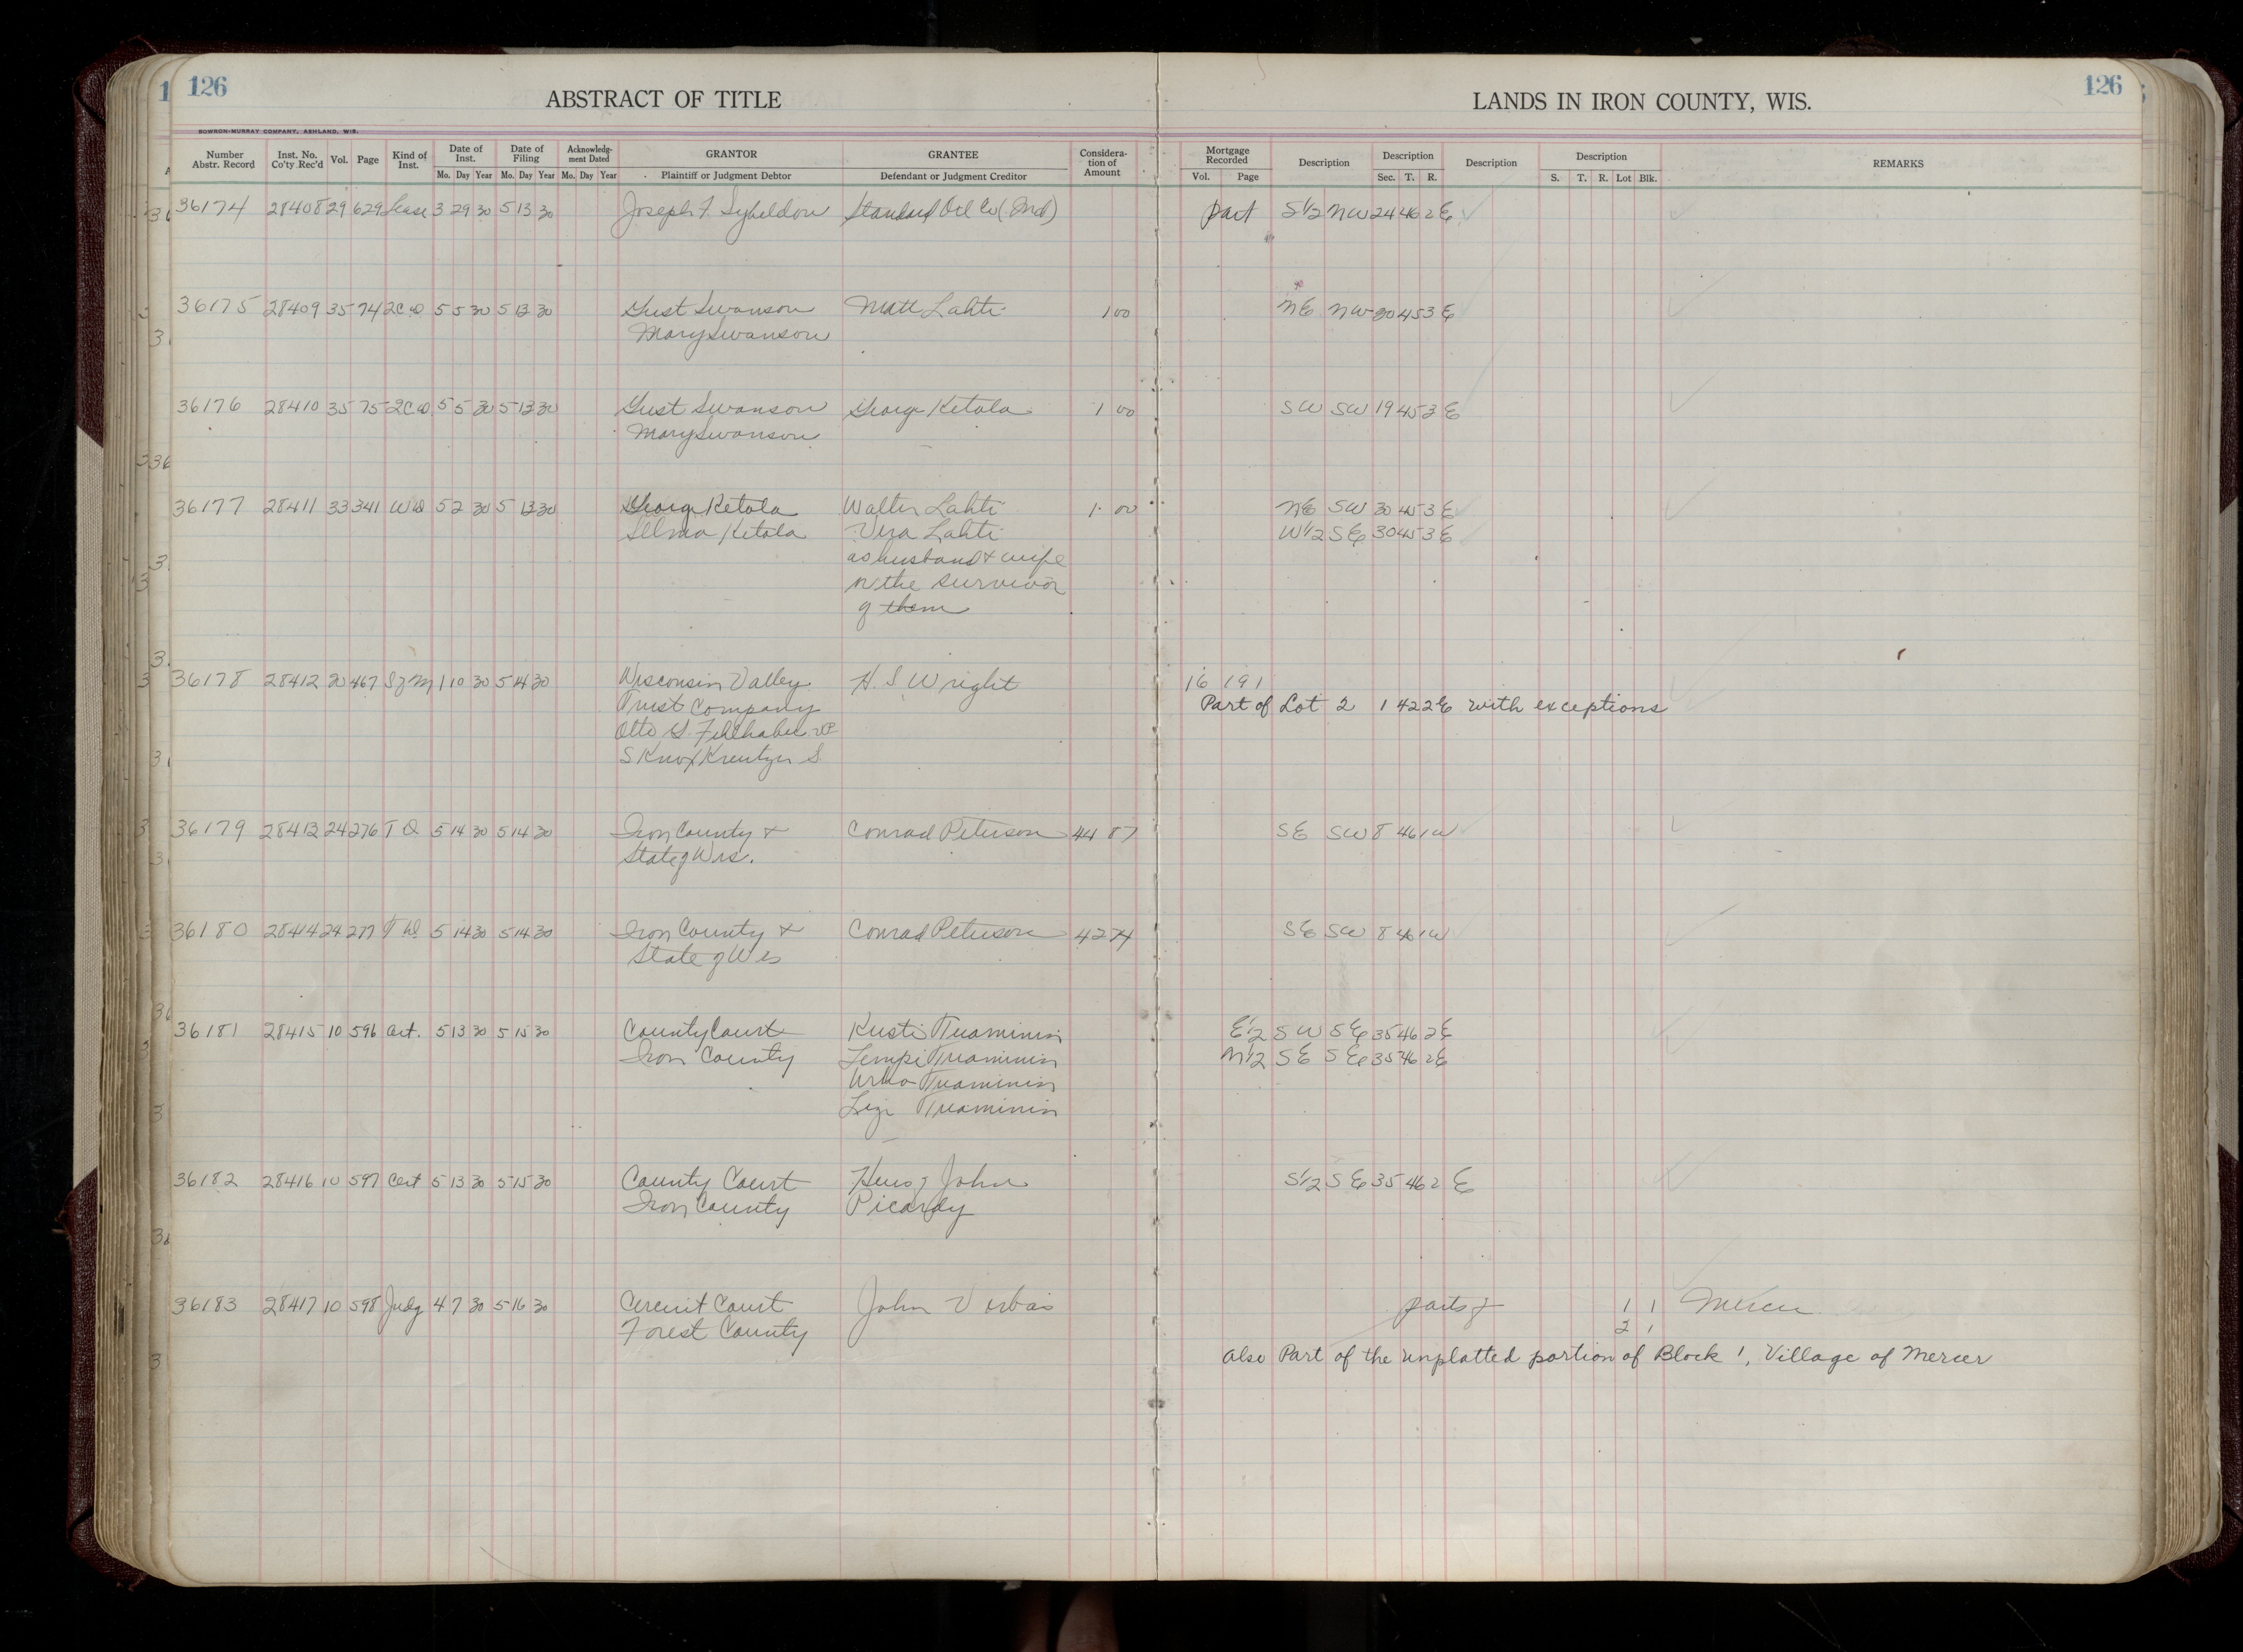 126
ABSTRACT OF TITLE
LANDS IN IRON COUNTY, WIS.
126
BOWRON-MURRAY COMPANY, ASHLAND, WIS.
Number Abstr. Record Inst. No. Co'ty Rec'd Vol. Page Kind of Inst. Date of Inst. Mo. Day Year Date of Filing Mo. Day Year Acknowledg-ment Dated Mo. Day Year GRANTOR Plaintiff or Judgment Debtor GRANTEE Defendant or Judgment Creditor Considera-tion of Amount Mortgage Recorded Vol. Page Description Description Sec. T. R. Description Description S. T. R. Lot Blk. REMARKS
36174 28408 29 629 Lease 3 29 30 5 13 30 Joseph F. Sybeldon Standard Oil Co (Ind) part S1/2 NW 24 46 2 E
36175 28409 35 74 2CD 5 5 30 5 13 30 Gust Swanson Matt Lahti 1 00 NE NW 30 45 3 E
Mary Swanson
36176 28410 35 75 2CD 5 5 30 5 13 30 Gust Swanson George Ketola 1 00 SW SW 19 45 3 E
Mary Swanson
36177 28411 33 341 WD 5 2 30 5 13 30 George Ketola Walter Lahti 1 00 NE SW 30 45 3 E
Selma Ketola Vera Lahti W1/2 SE 30 45 3 E
as husband & wife
or the survivor
of them
36178 28412 20 467 S of M 1 10 30 5 14 30 Wisconsin Valley H. S Wright 16 191
Trust Company Part of Lot 2 1 42 2 E with exceptions
Otto G. Fehlhaber VP
S Knox Kreutzer S
36179 28413 24 276 T D 5 14 30 5 14 30 Iron County & Conrad Peterson 44 87 SE SW 8 46 1 W
State of Wis.
36180 28414 24 277 T D 5 14 30 5 14 30 Iron County & Conrad Peterson 42 74 SE SW 8 46 1 W
State of Wis
36181 28415 10 596 Cert. 5 13 30 5 15 30 County Court Kusti Tuominin E1/2 SW SE 35 46 2 E
Iron County Lempi Tuominin N1/2 SE SE 35 46 2 E
Urho Tuominin
Tuominin
36182 28416 10 597 Cert 5 13 30 5 15 30 County Court Heirs of John S1/2 SE 35 46 2 E
Iron County Picardy
36183 28417 10 598 Judg 4 7 30 5 16 30 Circuit Court John Verbos parts of 1 1 Mercer
Forest County 2 1
also Part of the unplatted portion of Block 1, Village of Mercer